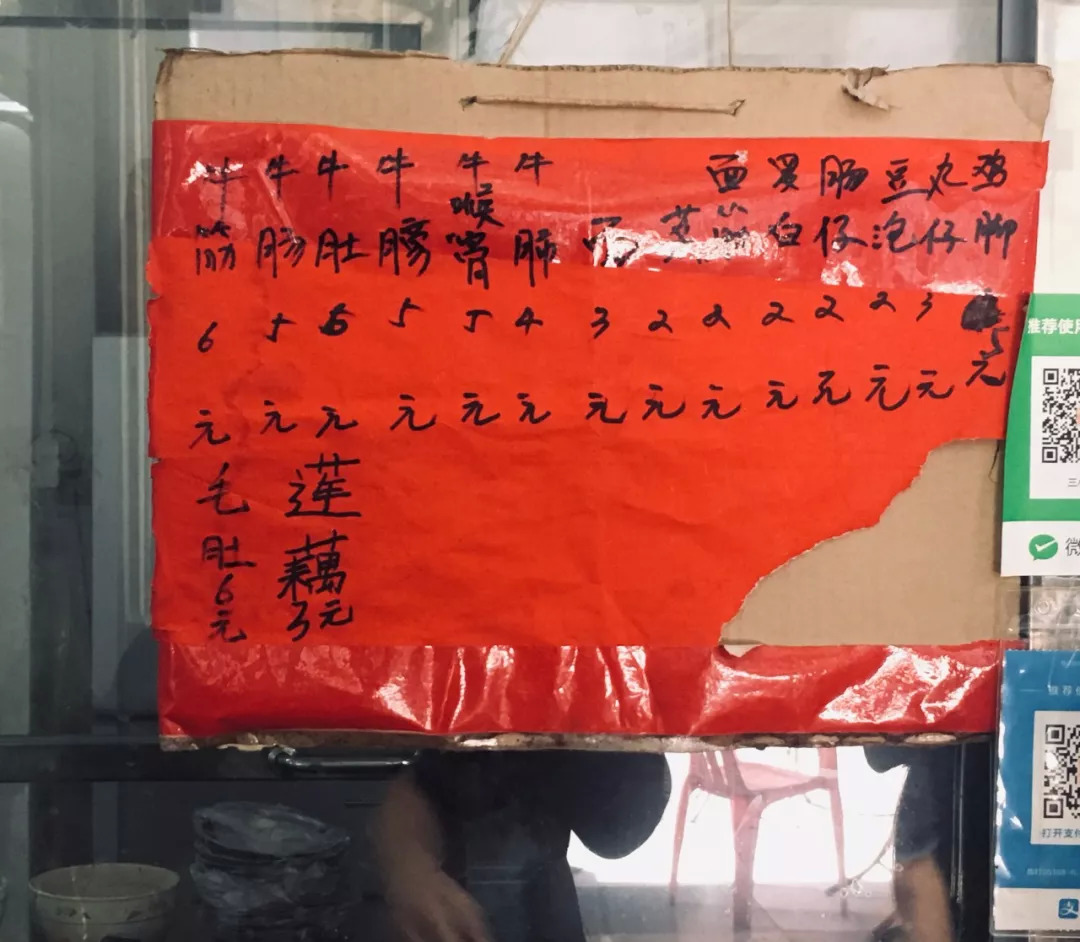 牛筋6元
牛肠5元
牛肚6元
牛膀5元
牛喉胃5元
牛肺4元
3元
2元
面筋2元
白2元
肠仔2元
豆泡2元
丸仔3元
鸡脚5元
毛肚6元
莲藕3元
推荐使用
微
推荐
打开支付
支